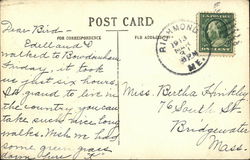 POST CARD
FOR CORRESPONDENCE
FOR ADDRESS
RICHMOND
ME.
Dear Bird -
Edell and I
walked to Bowdoinham
Friday, it took
us just six hours.
Is grand to live in
the country you can
take such nice long
walks. Wish we had
some green grass
down here
Miss Bertha Hinkley
76 South St.
Bridgewater
Mass.